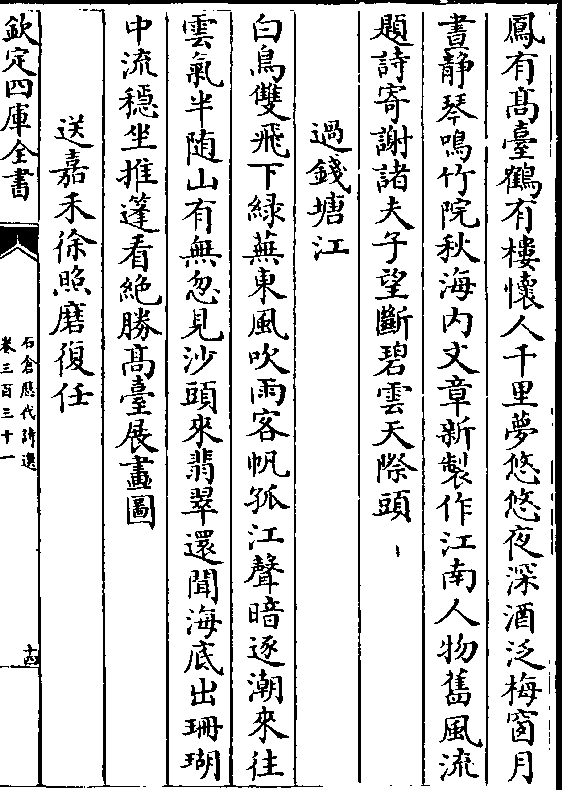 鳳有髙臺鶴有樓懷人千里夢悠悠夜深酒泛梅窗月
晝静琴鳴竹院秋海内文章新製作江南人物舊風流
題詩寄謝諸夫子望斷碧雲天際頭
過錢塘江
白鳥雙飛下緑蕪東風吹雨客帆孤江聲暗逐潮來往
雲氣半随山有無忽見沙頭來翡翠還聞海底出珊瑚
中流穩坐推篷看絶勝髙臺展畫圖
送嘉禾徐照磨復任
欽定四庫全書
石倉歷代詩選
卷三百三十一
十四